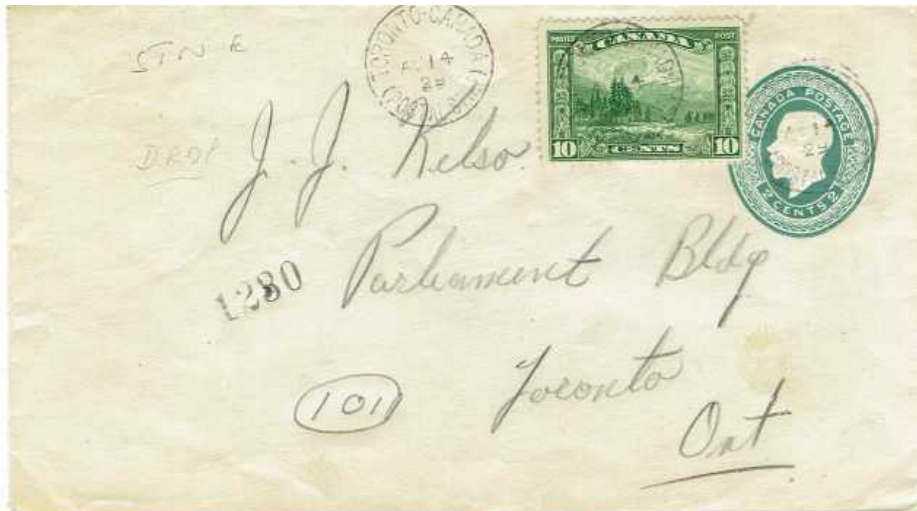 STN E
TORONTO-CANADA
14
29
POSTES POST
CANADA
10 CENTS 10
CANADA POSTAGE
2 CENTS 2
14
29
DROP
J. J. Kelso
1280
Parliament Bldg
101
Toronto
Ont